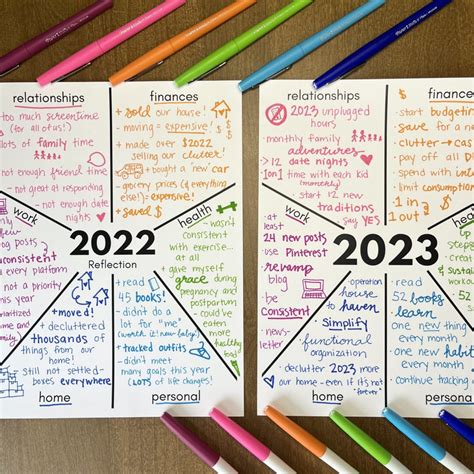 relationships
too much screentime
(for all of us!)
lots of family time
not enough friend time
not great at responding
not enough date nights
finances
+ sold our house!
- moving = expensive!
+ made over $2022
selling our clutter!
- bought a "new" car
- grocery prices (& everything
else!) = expensive!
+ saved $
work
blog posts
inconsistent
every platform
not a priority
prioritized
home and
family
health
- wasn't
consistent
with exercise...
at all
+ gave myself
grace during
pregnancy and
postpartum
- could've
eaten
more
healthy
food
2022
Reflection
+ moved!
+ decluttered
thousands of
things from our
home!
- still not settled-
boxes everywhere
home
+ read
45 books!
- didn't do
a lot
for "me"
(worth it = new baby!)
+ tracked outfits
- didn't meet
many goals this year
(LOTS of life changes!)
personal
relationships
2023 unplugged
hours
- monthly family
adventures
- >12 date nights
- 1 on 1 time with each kid
(monthly)
- start 12 new
traditions
- say YES
finances
- start budgeting
- save for a
- clutter → cash
- pay off all
- spend with
- limit consumption
1 in
1 out
work
- at
least
24 new posts
- use Pinterest
- revamp
blog
- be
Consistent
- news-
letter
2023
- operation
house to
haven
- Simplify
- functional
organization
- declutter 2023 more
- our home - even if it's not
"forever"
home
- read
52 books
- learn
one new thing
every month
- one new habit
every month
- continue tracking
persona